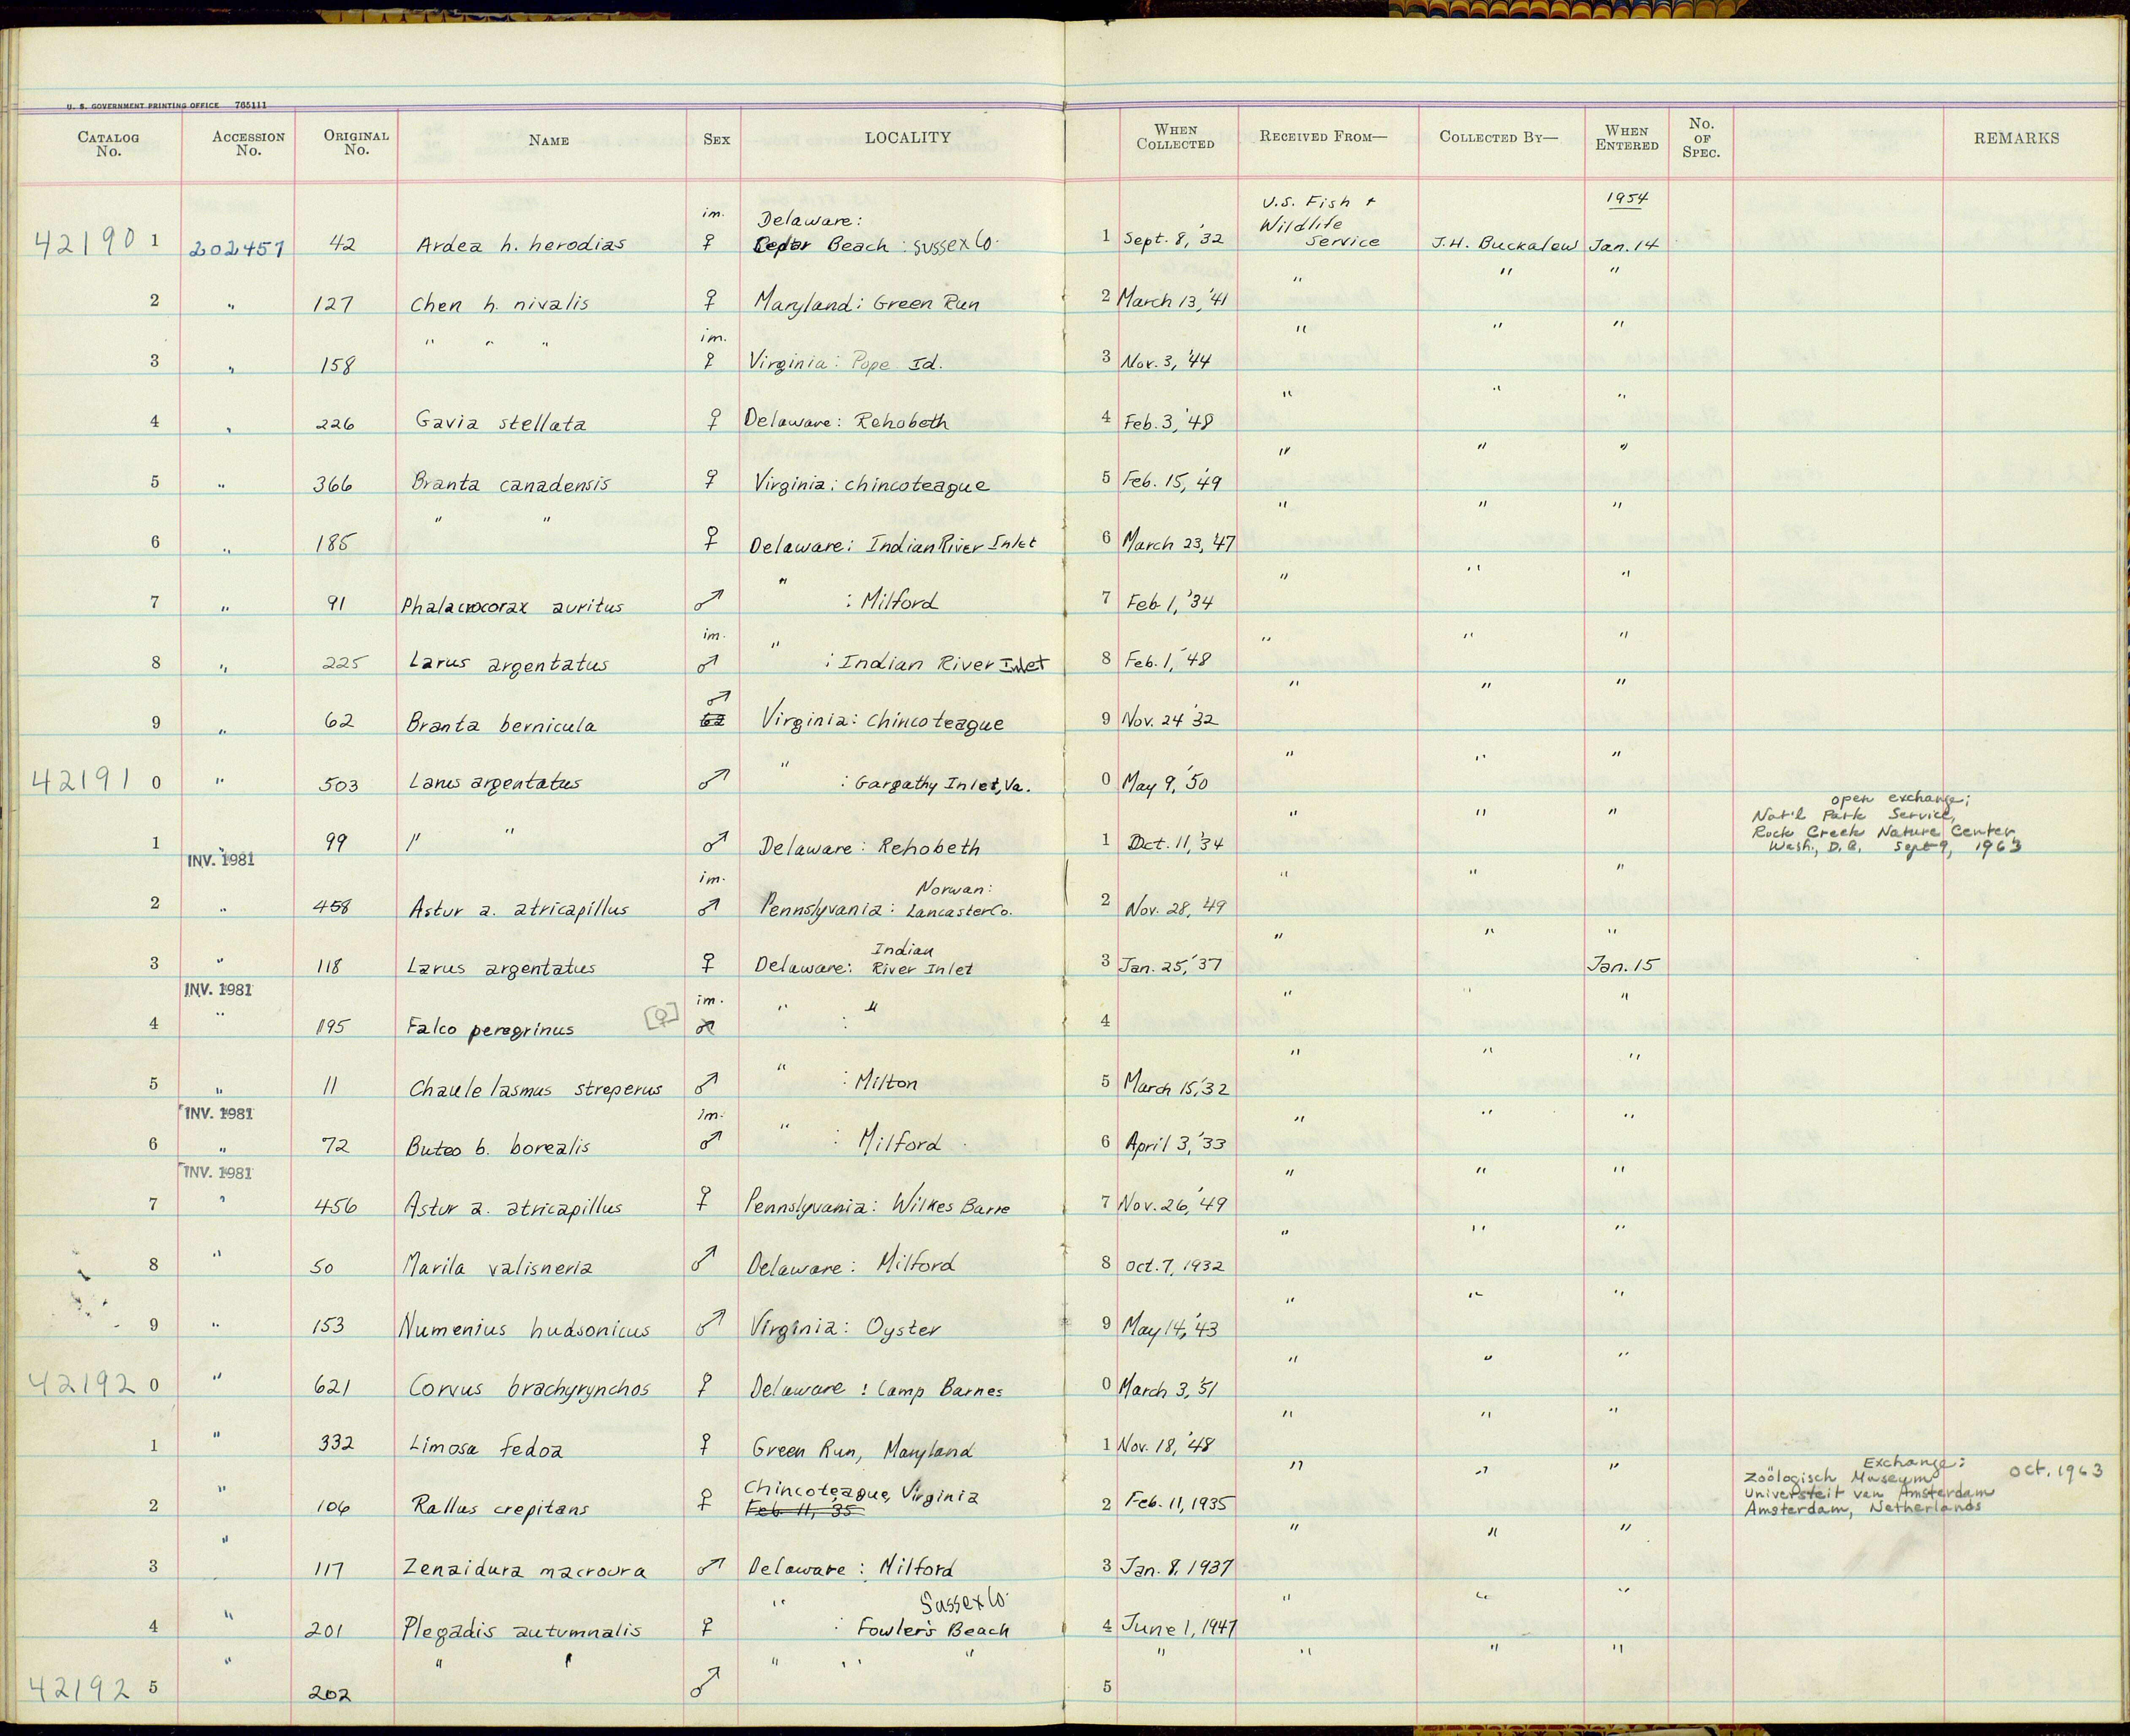 U. S. GOVERNMENT PRINTING OFFICE 765111
CATALOG No. ACCESSION No. ORIGINAL No. NAME SEX LOCALITY WHEN COLLECTED RECEIVED FROM— COLLECTED BY— WHEN ENTERED No. OF SPEC. REMARKS
im. Delaware: U.S. Fish + Wildlife 1954
42190 1 202457 42 Ardea h. herodias ♀ Beach : Sussex Co. 1 Sept. 8, '32 Service J.H. Buckalew Jan. 14
2 " 127 Chen h. nivalis ♀ Maryland: Green Run 2 March 13, '41 " " "
im.
3 " 158 " " " ♀ Virginia: Pope Id. 3 Nov. 3, '44 " " "
4 " 226 Gavia stellata ♀ Delaware: Rehobeth 4 Feb. 3, '48 " " "
5 " 366 Branta canadensis ♀ Virginia: Chincoteague 5 Feb. 15, '49 " " "
6 " 185 " " ♀ Delaware: Indian River Inlet 6 March 23, '47 " " "
7 " 91 Phalacrocorax auritus ♂ " : Milford 7 Feb 1, '34 " " "
im.
8 " 225 Larus argentatus ♂ " : Indian River Inlet 8 Feb. 1, '48 " " "
♂
9 " 62 Branta bernicula 62 Virginia: Chincoteague 9 Nov. 24 '32 " " "
42191 0 " 503 Larus argentatus ♂ " : Gargathy Inlet, Va. 0 May 9, '50 " " "
open exchange;
Nat'l Park Service,
Rock Creek Nature Center
Wash., D.C. Sept 9, 1963
1 " 99 " " ♂ Delaware: Rehobeth 1 Oct. 11, '34 " " "
INV. 1981
im. Norwan:
2 " 458 Astur a. atricapillus ♂ Pennslyvania: Lancaster Co. 2 Nov. 28, '49 " " "
Indian
3 " 118 Larus argentatus ♀ Delaware: River Inlet 3 Jan. 25, '37 " " " Jan. 15
INV. 1981 im.
4 " 195 Falco peregrinus [♀] ♂ " : " 4 " " "
5 " 11 Chaulelasmus streperus ♂ " : Milton 5 March 15, '32 " " "
INV. 1981 im.
6 " 72 Buteo b. borealis ♂ " : Milford 6 April 3, '33 " " "
INV. 1981
7 " 456 Astur a. atricapillus ♀ Pennslyvania: Wilkes Barre 7 Nov. 26, '49 " " "
8 " 50 Marila valisneria ♂ Delaware: Milford 8 Oct. 7, 1932 " " "
9 " 153 Numenius hudsonicus ♂ Virginia: Oyster 9 May 14, '43 " " "
42192 0 " 621 Corvus brachyrynchos ♀ Delaware: Camp Barnes 0 March 3, '51 " " "
1 " 332 Limosa fedoa ♀ Green Run, Maryland 1 Nov. 18, '48 " " "
Exchange: Oct. 1963
Zoölogisch Museum
Universiteit van Amsterdam
Amsterdam, Netherlands
Chincoteague, Virginia
2 " 106 Rallus crepitans ♀ Feb. 11, 35 2 Feb. 11, 1935 " " "
3 " 117 Zenaidura macroura ♂ Delaware: Milford 3 Jan. 8, 1937 " " "
Sussex Co.
4 " 201 Plegadis autumnalis ♀ " : Fowler's Beach 4 June 1, 1947 " " "
42192 5 " 202 " " ♂ " " " 5 " " " "